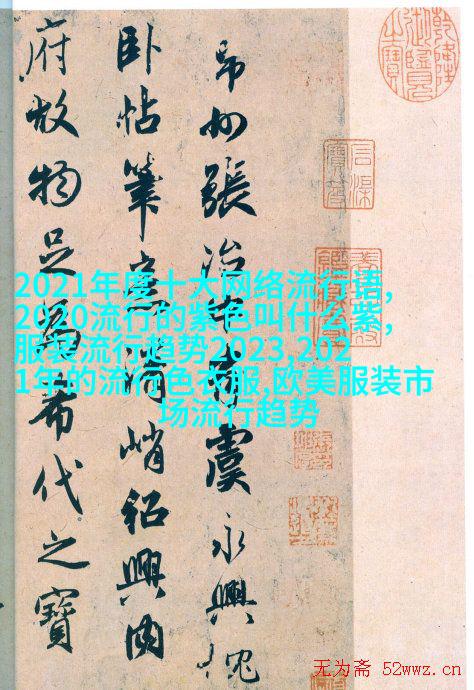 乾隆御覽之寶
州張治中虞永興枕
卧帖筆意清峭紹興内
府故物足為希代之寶
2021年度十大网络流行语,
2020流行的紫色叫什么紫,
服装流行趋势2023,202
1年的流行色衣服,欧美服装市
场流行趋势
无为斋 52wwz.cn